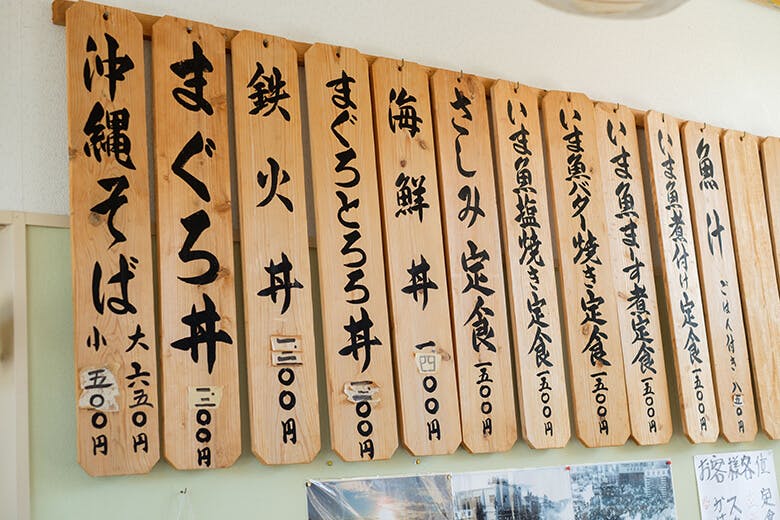 沖縄そば
大 六五〇円
小 五〇〇円
まぐろ丼 〇〇円
鉄火丼 一二〇〇円
まぐろとろろ丼 〇〇円
海鮮丼 一四〇〇円
さしみ定食 一五〇〇円
いま魚塩焼き定食 一五〇〇円
いま魚バター焼き定食 一五〇〇円
いま魚まーす煮定食 一五〇〇円
いま魚煮付け定食 一五〇〇円
魚汁 ごはん付き 八五〇円
お客様各位